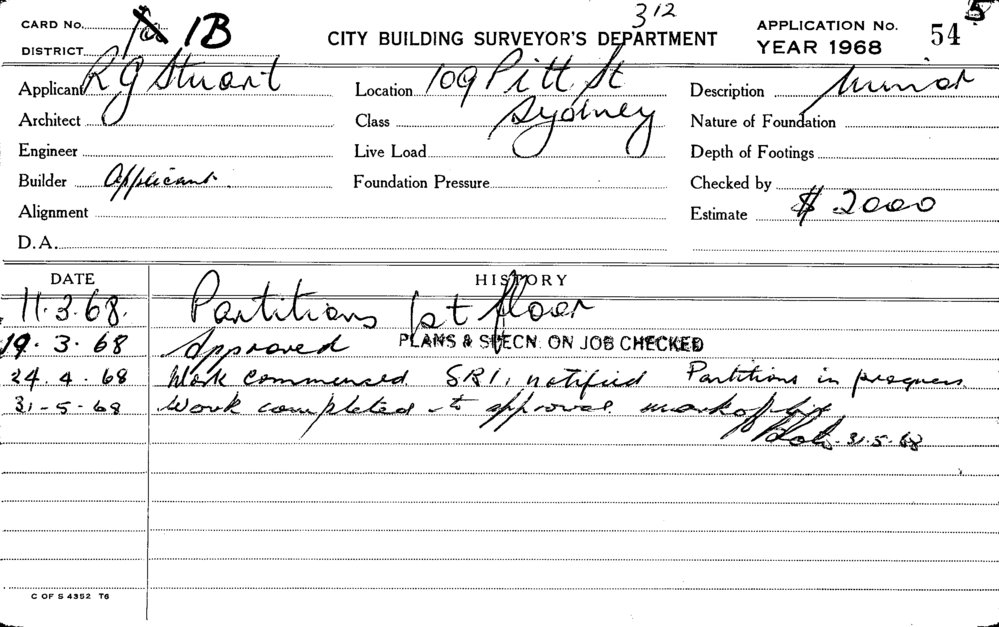 CARD No. 1B
CITY BUILDING SURVEYOR'S DEPARTMENT
312
APPLICATION No. 54 5
DISTRICT
YEAR 1968
Applicant R G Stuart
Location 109 Pitt St
Description Minor
Architect
Class Sydney
Nature of Foundation
Engineer
Live Load
Depth of Footings
Builder Applicant.
Foundation Pressure
Checked by
Alignment
Estimate $ 2000
D.A.
DATE HISTORY
11.3.68. Partitions 1st floor
19.3.68 Approved PLANS & SPECN. ON JOB CHECKED
24.4.68 Work commenced. SRI, notified Partitions in progress
31-5-68 Work completed to approval mark off
31.5.68
C OF S 4352 T6